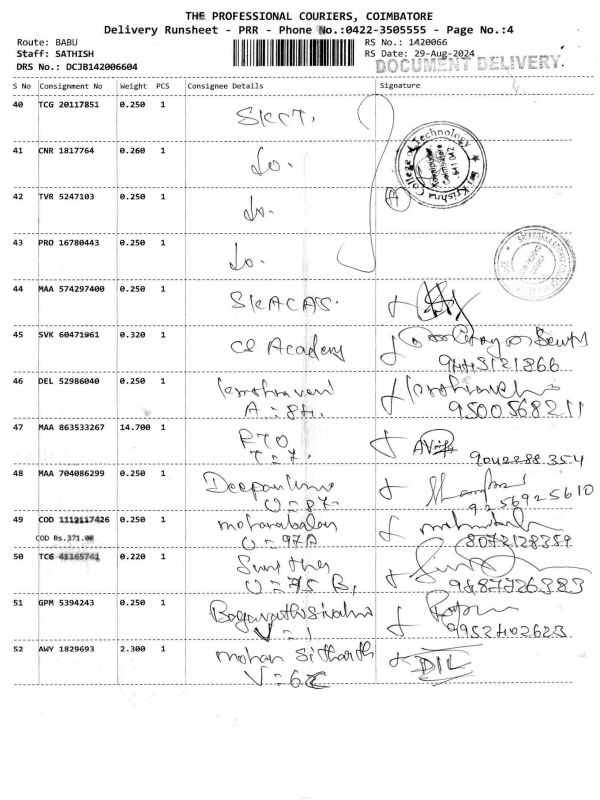 THE PROFESSIONAL COURIERS, COIMBATORE
Delivery Runsheet - PRR - Phone No.:0422-3505555 - Page No.:4
Route: BABU
RS No.: 1420066
Staff: SATHISH
RS Date: 29-Aug-2024
DRS No.: DCJB142006604
DOCUMENT DELIVERY.
S No Consignment No Weight PCS Consignee Details Signature
40 TCG 20117851 0.250 1 SKCT.
Sri Krishna College of Technology
Coimbatore
641 042
41 CNR 1817764 0.260 1 do.
42 TVR 5247103 0.250 1 do.
43 PRO 16780443 0.250 1 do.
44 MAA 574297400 0.250 1 SKACAS.
45 SVK 60471961 0.320 1 CS Academy
9443121866
46 DEL 52986040 0.250 1
A = 84. 9500568211
47 MAA 863533267 14.700 1 RTO
T = 7. 9042888354
48 MAA 704086299 0.250 1
U = 87- 9256925610
49 COD 1112117426 0.250 1
COD Rs.371.00 U = 97A 8073128359
50 TCG 41165741 0.220 1
U = 75 B, 9487726383
51 GPM 5394243 0.250 1
V = 1 9952402623
52 AWY 1829693 2.300 1 mohan Sitharth DIL
V = 6C